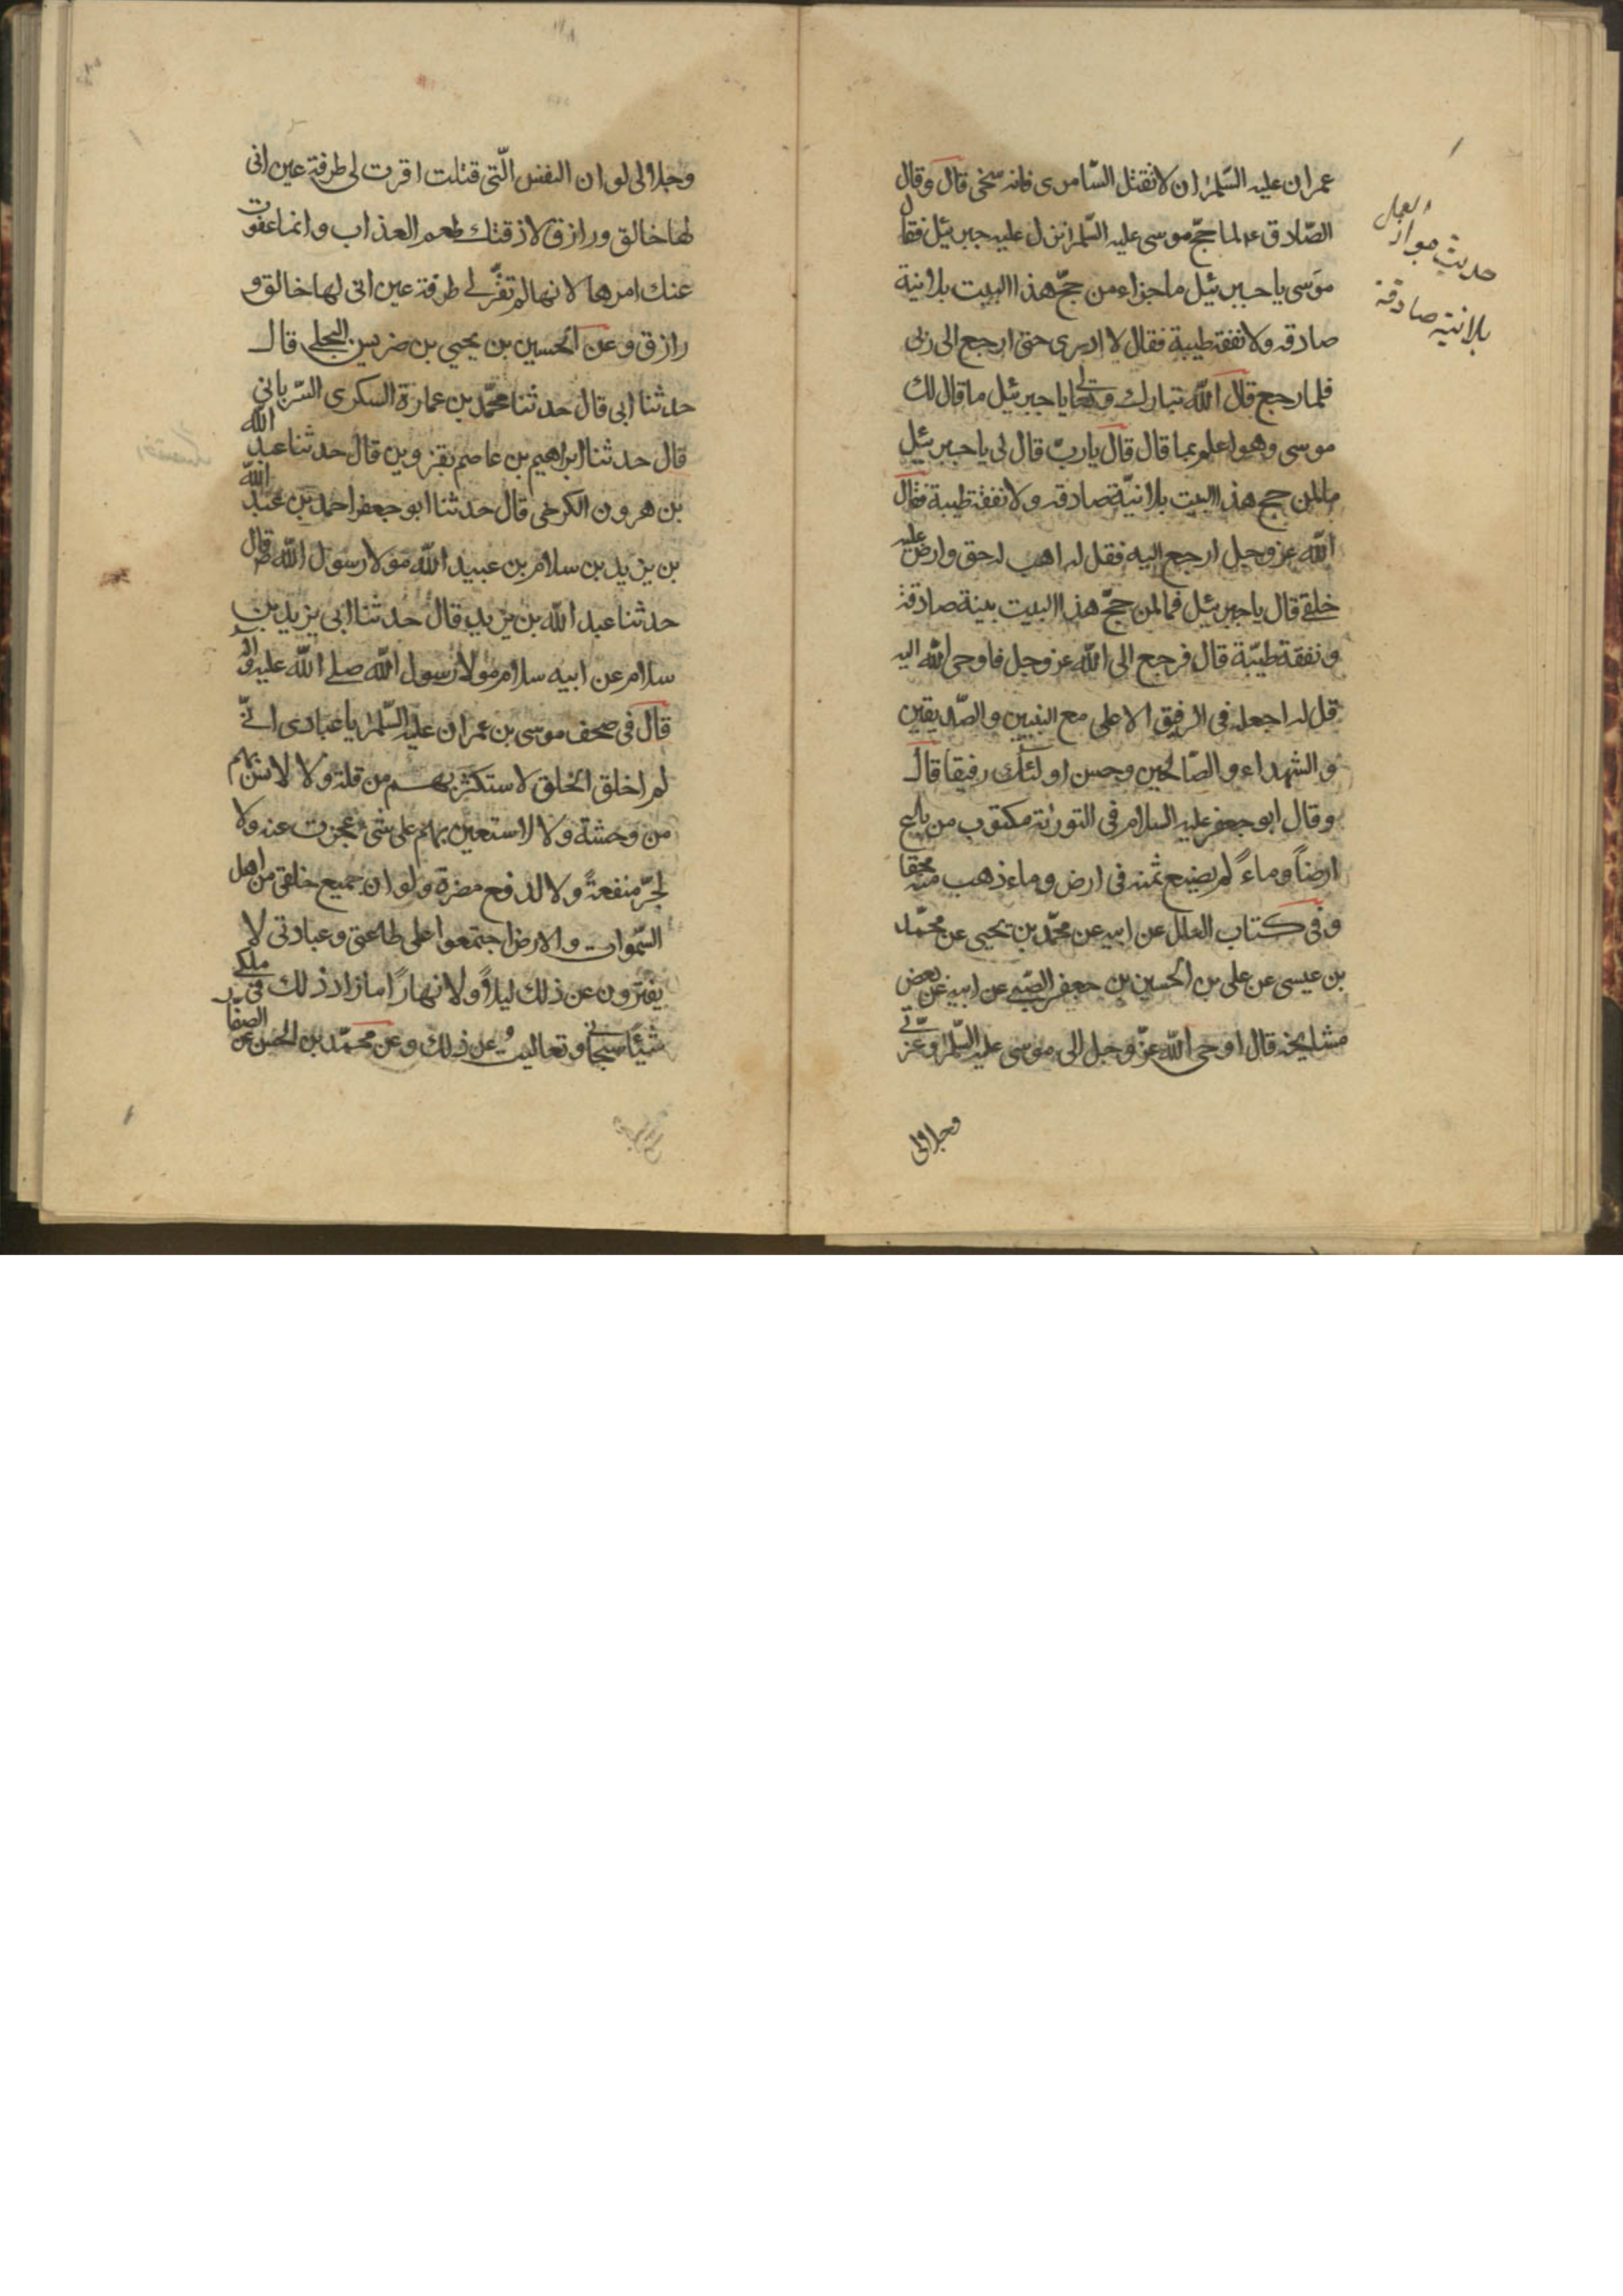 عمران عليه السلم ان لا تقتل السامرى فانه سخى قال وقال
الصادق ع لما حج موسى عليه السلم نزل عليه جبرئيل فقال
موسى يا جبرئيل ما جزاء من حج هذا البيت بلا نية
صادقه ولا نفقة طيبة فقال لا ادرى حتى ارجع الى ربى
فلما رجع قال الله تبارك وتعالى يا جبرئيل ما قال لك
موسى وهو اعلم بما قال قال يا رب قال لى يا جبرئيل
ما لمن حج هذا البيت بلا نية صادقه ولا نفقة طيبة فقال
الله عز وجل ارجع اليه فقل له اهب له حقى وارضى عليه
خلقى قال يا جبرئيل فما لمن حج هذا البيت بنية صادقة
ونفقة طيبة قال فرجع الى الله عز وجل فاوحى الله اليه
قل له اجعله فى الرفيق الاعلى مع النبيين والصديقين
والشهداء والصالحين وحسن اولئك رفيقا قال
وقال ابو جعفر عليه السلام فى التورٰية مكتوب من باع
ارضاً وماءً لم يضع ثمنه فى ارض وماء ذهب ثمنه محقا
وفى كتاب العلل عن ابيه عن محمد بن يحيى عن محمد
بن عيسى عن على بن الحسين بن جعفر الضبى عن ابيه عن بعض
مشايخه قال اوحى الله عز وجل الى موسى عليه السلم وعزتى
وجلالى
حديث
بلا نية صادقة
وجلالى لو ان النفس التى قتلت اقرت لى طرفة عين انى
لها خالق ورازق لاذقتك طعم العذاب وانما عفوت
عنك امرها لانها لم تقر لى طرفة عين انى لها خالق و
رازق وعن الحسين بن يحيى بن ضريس البجلى قال
حدثنا ابى قال حدثنا محمد بن عمارة السكرى السريانى
قال حدثنا ابراهيم بن عاصم بقزوين قال حدثنا عبد الله
بن هرون الكرخى قال حدثنا ابو جعفر احمد بن عبد الله
بن يزيد بن سلام بن عبيد الله مولا رسول الله ص قال
حدثنا عبد الله بن يزيد قال حدثنا ابى يزيد بن
سلام عن ابيه سلام مولا رسول الله صلى الله عليه واله
قال فى صحف موسى بن عمران عليه السلم يا عبادى انى
لم اخلق الخلق لاستكثر بهم من قلة ولا لانس بهم
من وحشة ولا لاستعين بهم على شئ عجزت عنه ولا
لجر منفعةً ولا لدفع مضرة ولو ان جميع خلقى من اهل
السموات والارض اجتمعوا على طاعتى وعبادتى لا
يفترون عن ذلك ليلاً ولا نهاراً ما زاد ذلك فى ملكى
شيئا سبحانى وتعاليت عن ذلك وعن محمد بن الحسن عن الصفار